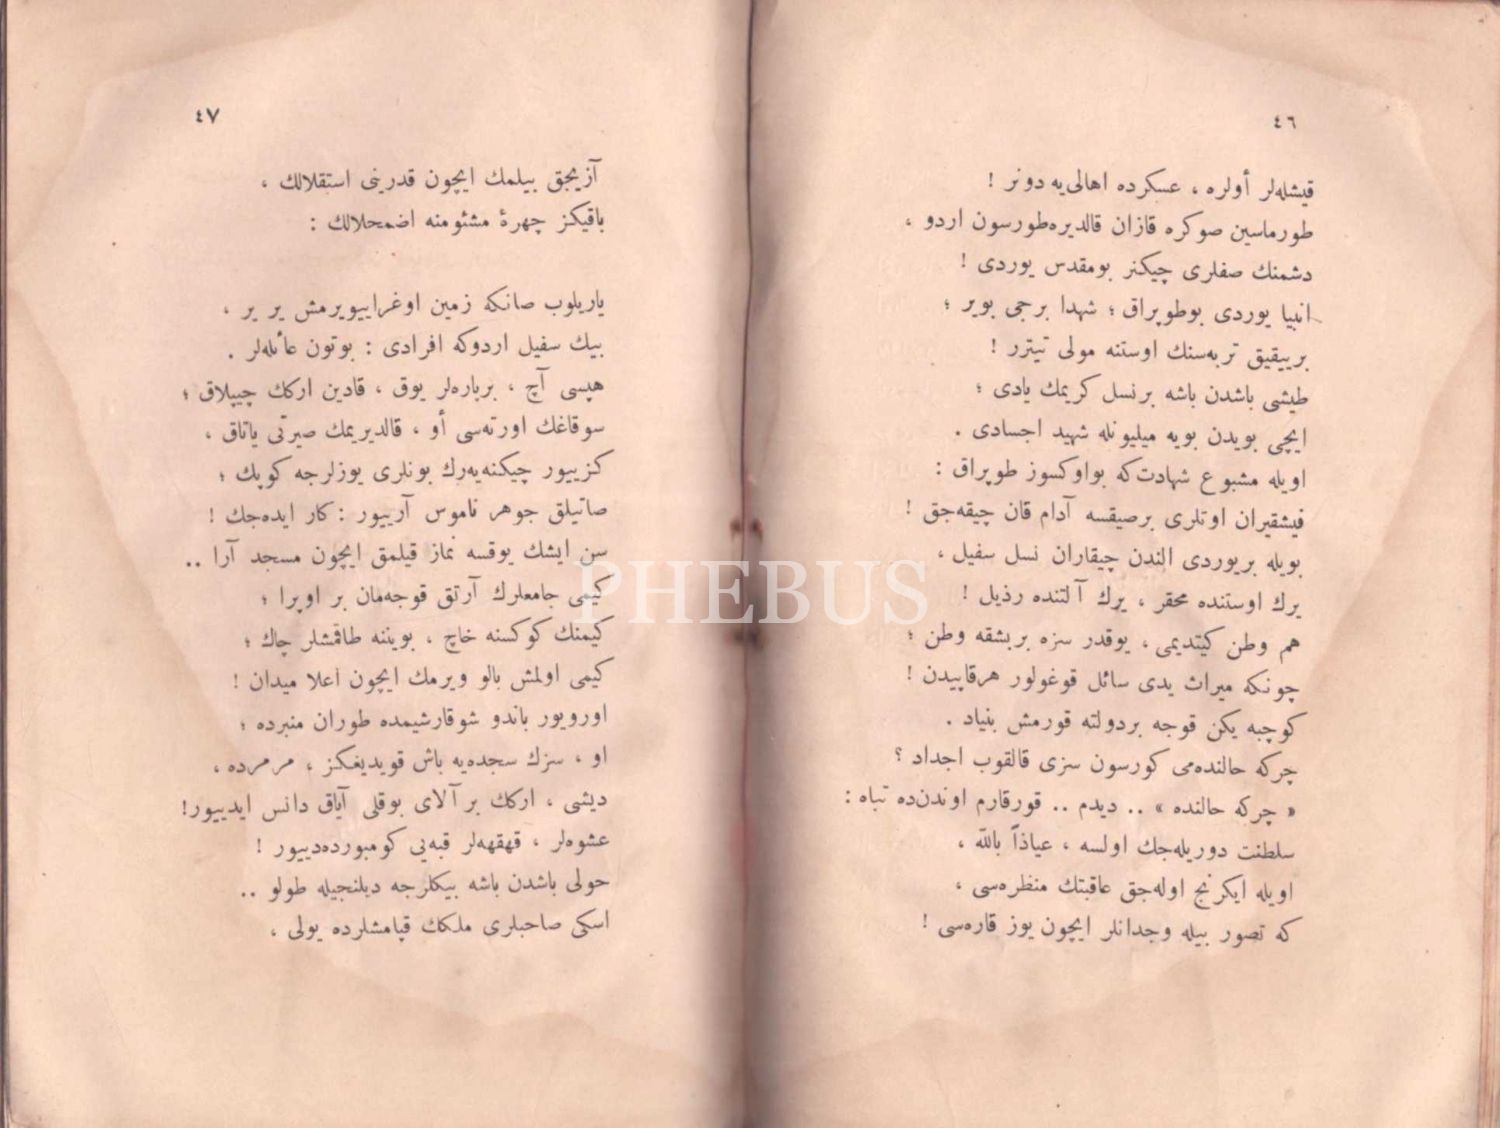 ٤٦
قیشله‌لر أولره ، عسکرده اهالی‌یه دونر !
طورماسین صوکره قازان قالدیره‌طورسون اردو ،
دشمنك صفلری چیکنر بومقدس یوردی !
انبیا یوردی بوطوپراق ؛ شهدا برجی بویر ؛
بریبقیق تربه‌سنك اوستنه مولی تیترر !
طیشی باشدن باشه برنسل کریمك یادی ؛
ایچی بویدن بویه میلیونله شهید اجسادی .
اویله مشبوع شهادت‌که بواوکسوز طوپراق :
فیشقیران اوتلری برصیقسه آدام قان چیقه‌جق !
بویله بریوردی الندن چیقاران نسل سفیل ،
یرك اوستنده محقر ، یرك آلتنده رذیل !
هم وطن کیتدیمی ، یوقدر سزه بربشقه وطن ؛
چونکه میراث یدی سائل قوغولور هرقاپیدن !
کوچبه یکن قوجه بردولته قورمش بنیاد .
چرکه حالنده‌می کورسون سزی قالقوب اجداد ؟
« چرکه حالنده » .. دیدم .. قورقارم اوندن‌ده تباه :
سلطنت دوریله‌جك اولسه ، عیاذاً بالله ،
اویله ایکرنج اوله‌جق عاقبتك منظره‌سی ،
که تصور بیله وجدانلر ایچون یوز قاره‌سی !
٤٧
آزیجق بیلمك ایچون قدرینی استقلالك ،
باقیکز چهرهٔ مشئومنه اضمحلالك :
یاریلوب صانکه زمین اوغراییویرمش یر یر ،
بیك سفیل اردوکه افرادی : بوتون عائله‌لر .
هپسی آچ ، برباره‌لر یوق ، قادین ارکك چیپلاق ؛
سوقاغك اورته‌سی أو ، قالدیریمك صیرتی یاتاق ،
کزییور چیکنه‌یه‌رك بونلری یوزلرجه کوپك ؛
صاتیلق جوهر ناموس آرییور : کار ایده‌جك !
سن ایشك یوقسه نماز قیلمق ایچون مسجد آرا ..
کیمی جامعلرك آرتق قوجه‌مان بر اوپرا ؛
کیمنك کوکسنه خاچ ، بویننه طاقمشلر چاك ؛
کیمی اولمش بالو ویرمك ایچون اعلا میدان !
اورویور باندو شوقارشیمده طوران منبرده ؛
او ، سزك سجده‌یه باش قویدیغکز ، مرمرده ،
دیشی ، ارکك بر آلای بوقلی آیاق دانس ایدییور!
عشوه‌لر ، قهقهه‌لر قبه‌یی کومبورده‌دییور !
حولی باشدن باشه بیکلرجه دیلنجیله طولو ..
اسکی صاحبلری ملکك قپامشلرده یولی ،
PHEBUS